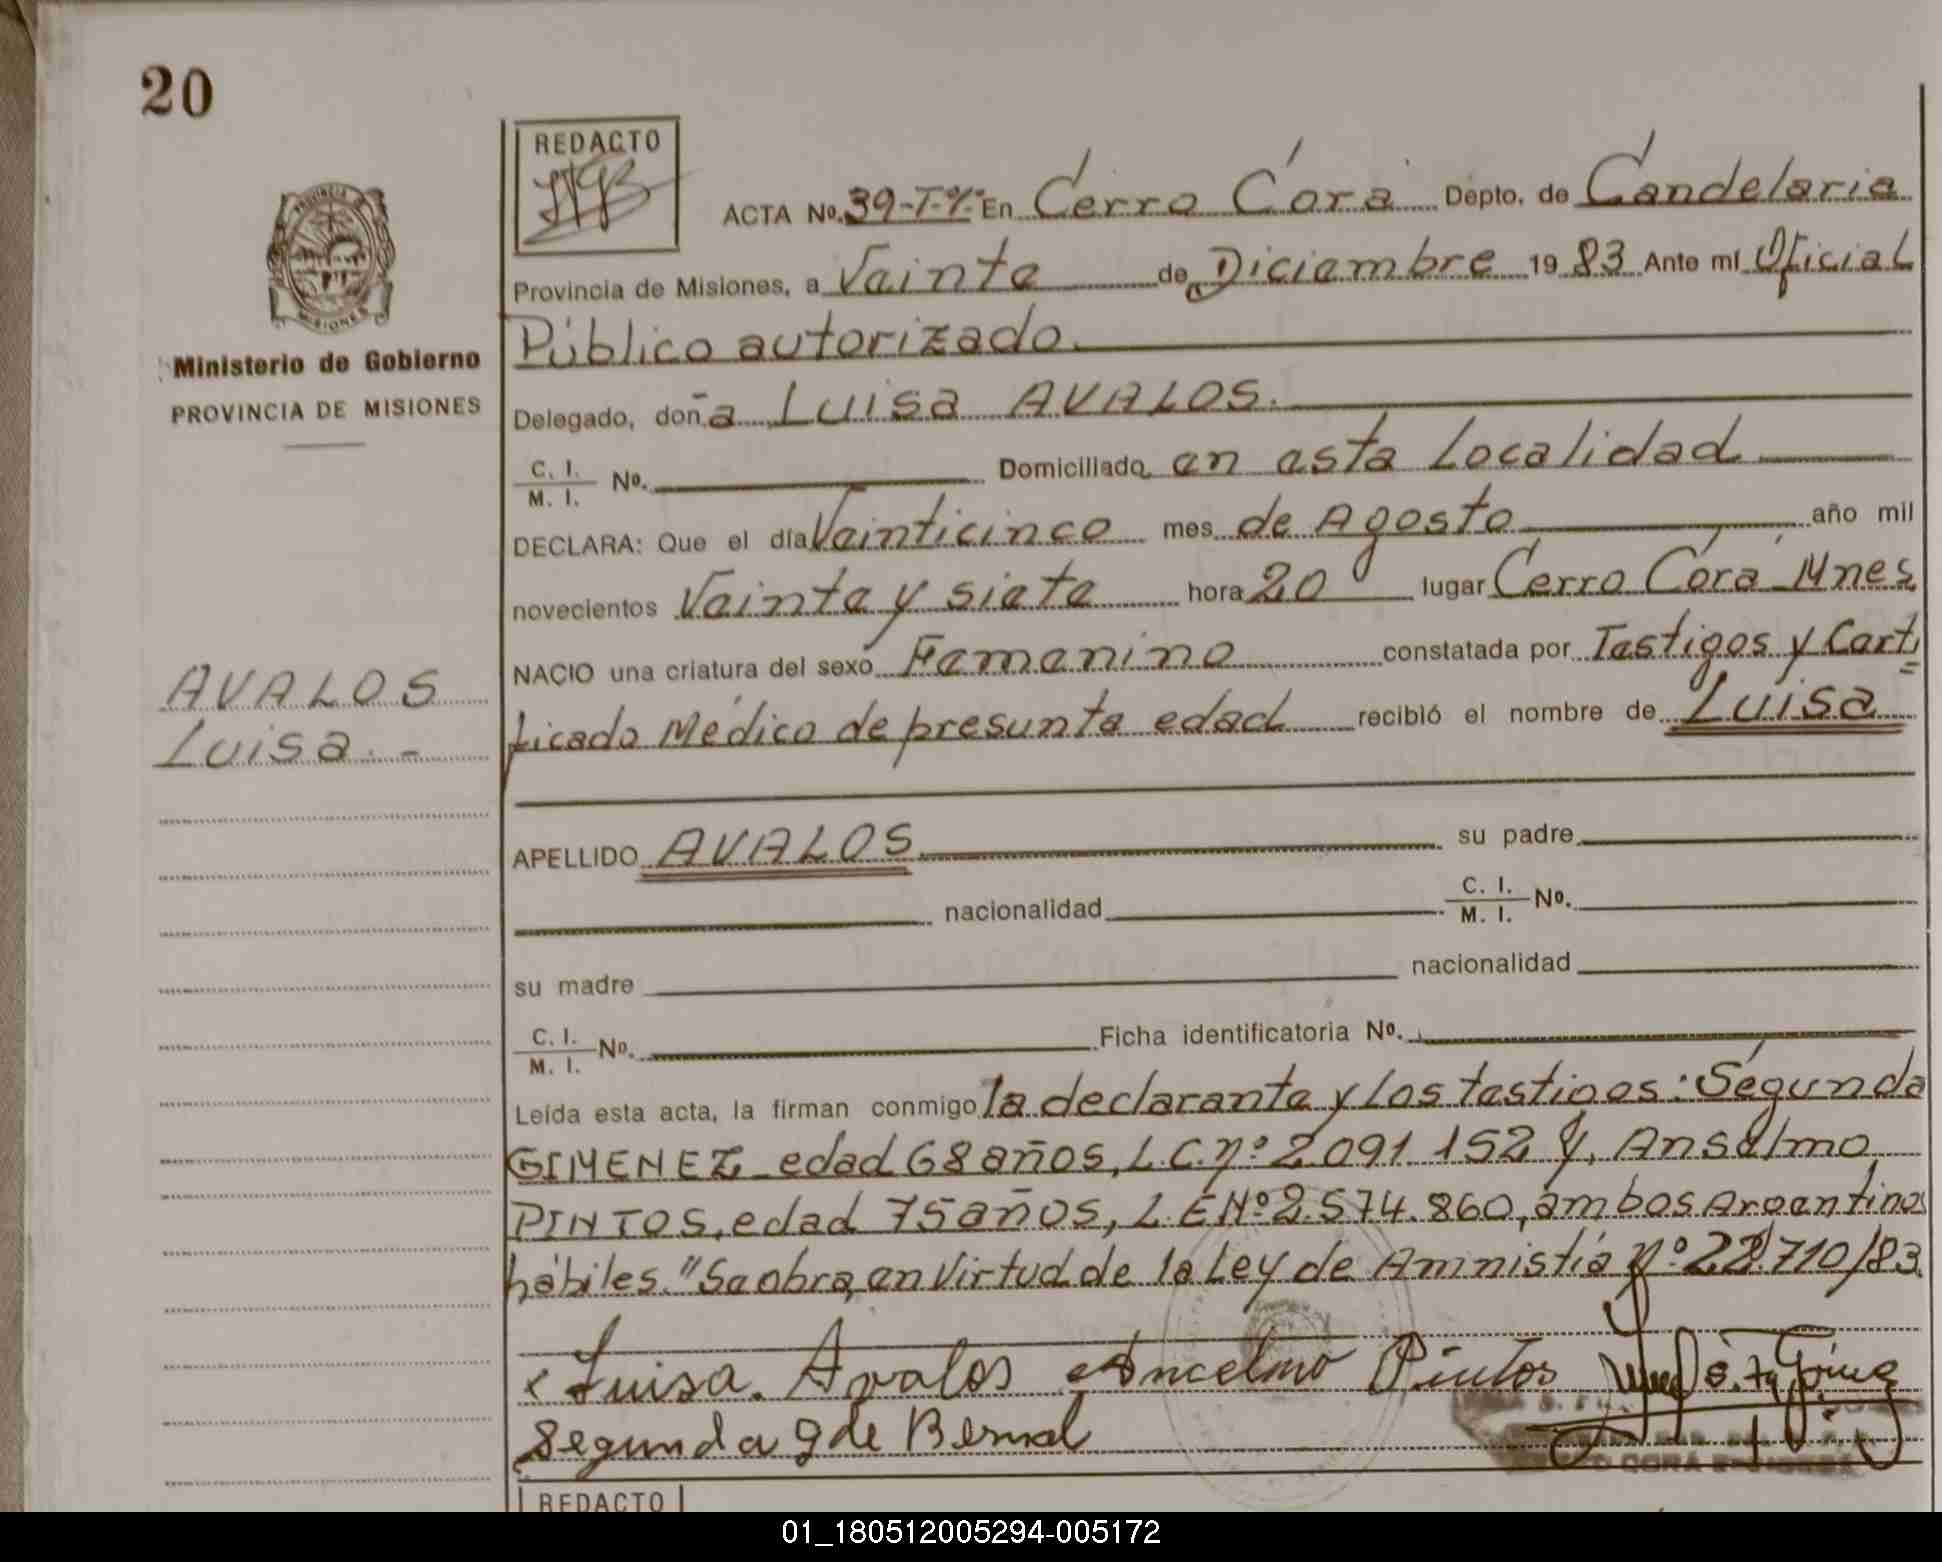 20
REDACTO
ACTA No. 39-T-º/º En Cerro Corá Depto. de Candelaria
Provincia de Misiones, a Veinte de Diciembre 19 83 Ante mí Oficial
Público autorizado.
Delegado, doña Luisa AVALOS.
C. I.
M. I. Nº. Domiciliado en esta localidad
DECLARA: Que el día Veinticinco mes de Agosto año mil
novecientos Veinte y siete hora 20 lugar Cerro Corá Mnes
NACIO una criatura del sexo Femenino constatada por Testigos y Certi
ficado Médico de presunta edad recibió el nombre de Luisa
PROVINCIA
MISIONES
Ministerio de Gobierno
PROVINCIA DE MISIONES
AVALOS
Luisa.-
APELLIDO AVALOS su padre
nacionalidad C. I.
M. I. Nº.
su madre nacionalidad
C. I.
M. I. Nº. Ficha identificatoria Nº.
Leída esta acta, la firman conmigo la declarante y los testigos: Segunda
GIMENEZ edad 68 años, L.C. nº 2.091.152 y, Anselmo
PINTOS, edad 75 años, L.E Nº 2.574.860, ambos Argentinos
hábiles. "Se obra, en Virtud de la Ley de Amnistía nº 22.710/83.
x Luisa. Avalos Ancelmo Pintos
Segunda g de Bernal
CORA
REDACTO
01_180512005294-005172